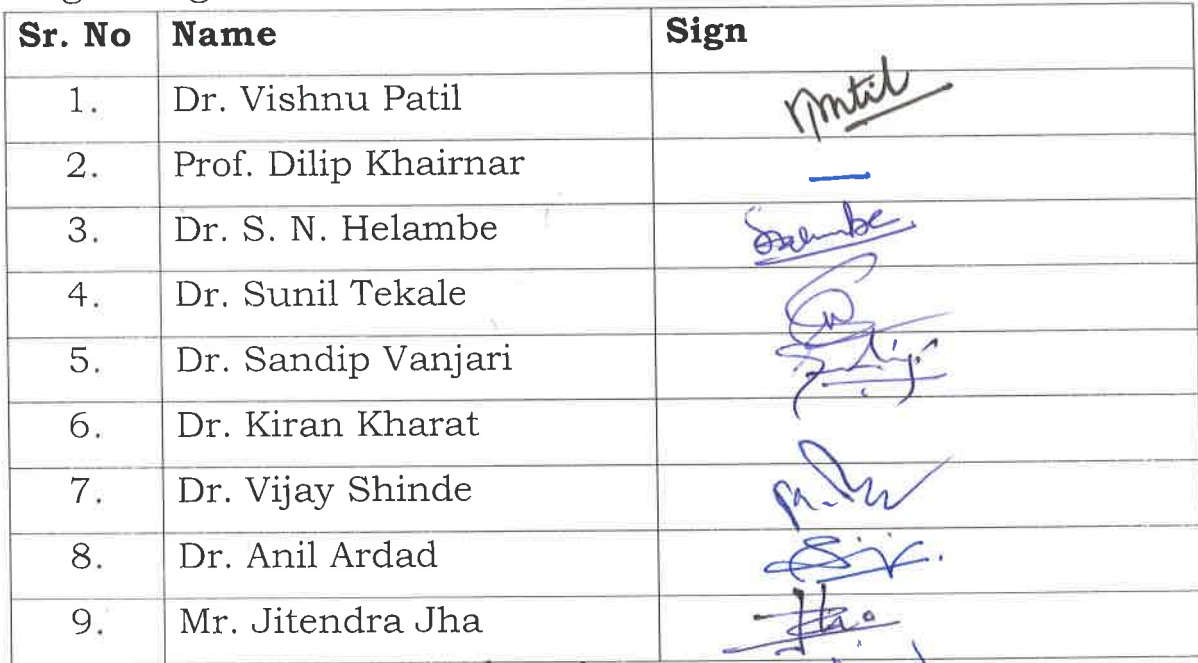 Sr. No Name Sign
1. Dr. Vishnu Patil
2. Prof. Dilip Khairnar —
3. Dr. S. N. Helambe
4. Dr. Sunil Tekale
5. Dr. Sandip Vanjari
6. Dr. Kiran Kharat
7. Dr. Vijay Shinde
8. Dr. Anil Ardad
9. Mr. Jitendra Jha